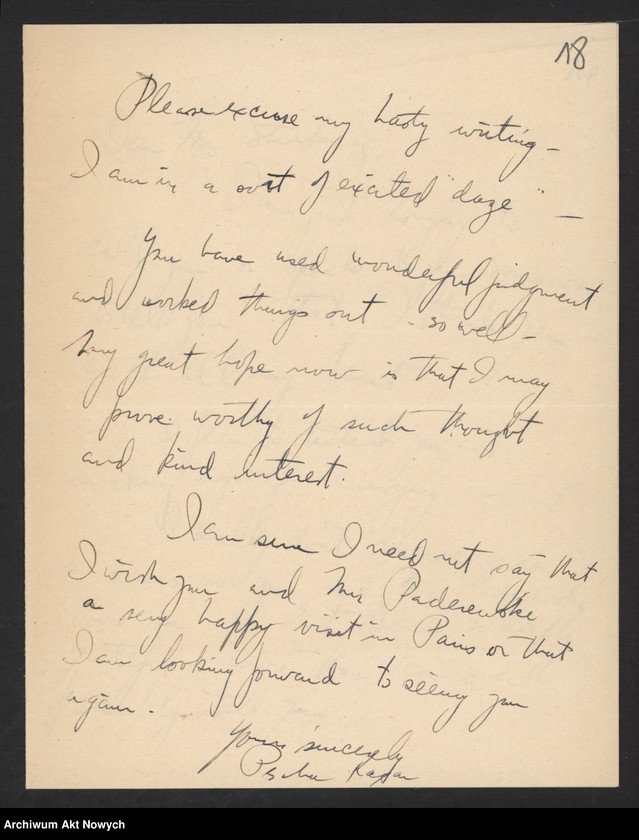 18
Please excuse my hasty writing –
I am in a sort of excited "daze" –
You have used wonderful judgment
and worked things out – so well –
My great hope now is that I may
prove worthy of such thought
and kind interest.
I am sure I need not say that
I wish you and Mr Paderewski
a very happy visit in Paris or that
I am looking forward to seeing you
again.
Yours sincerely
Archiwum Akt Nowych